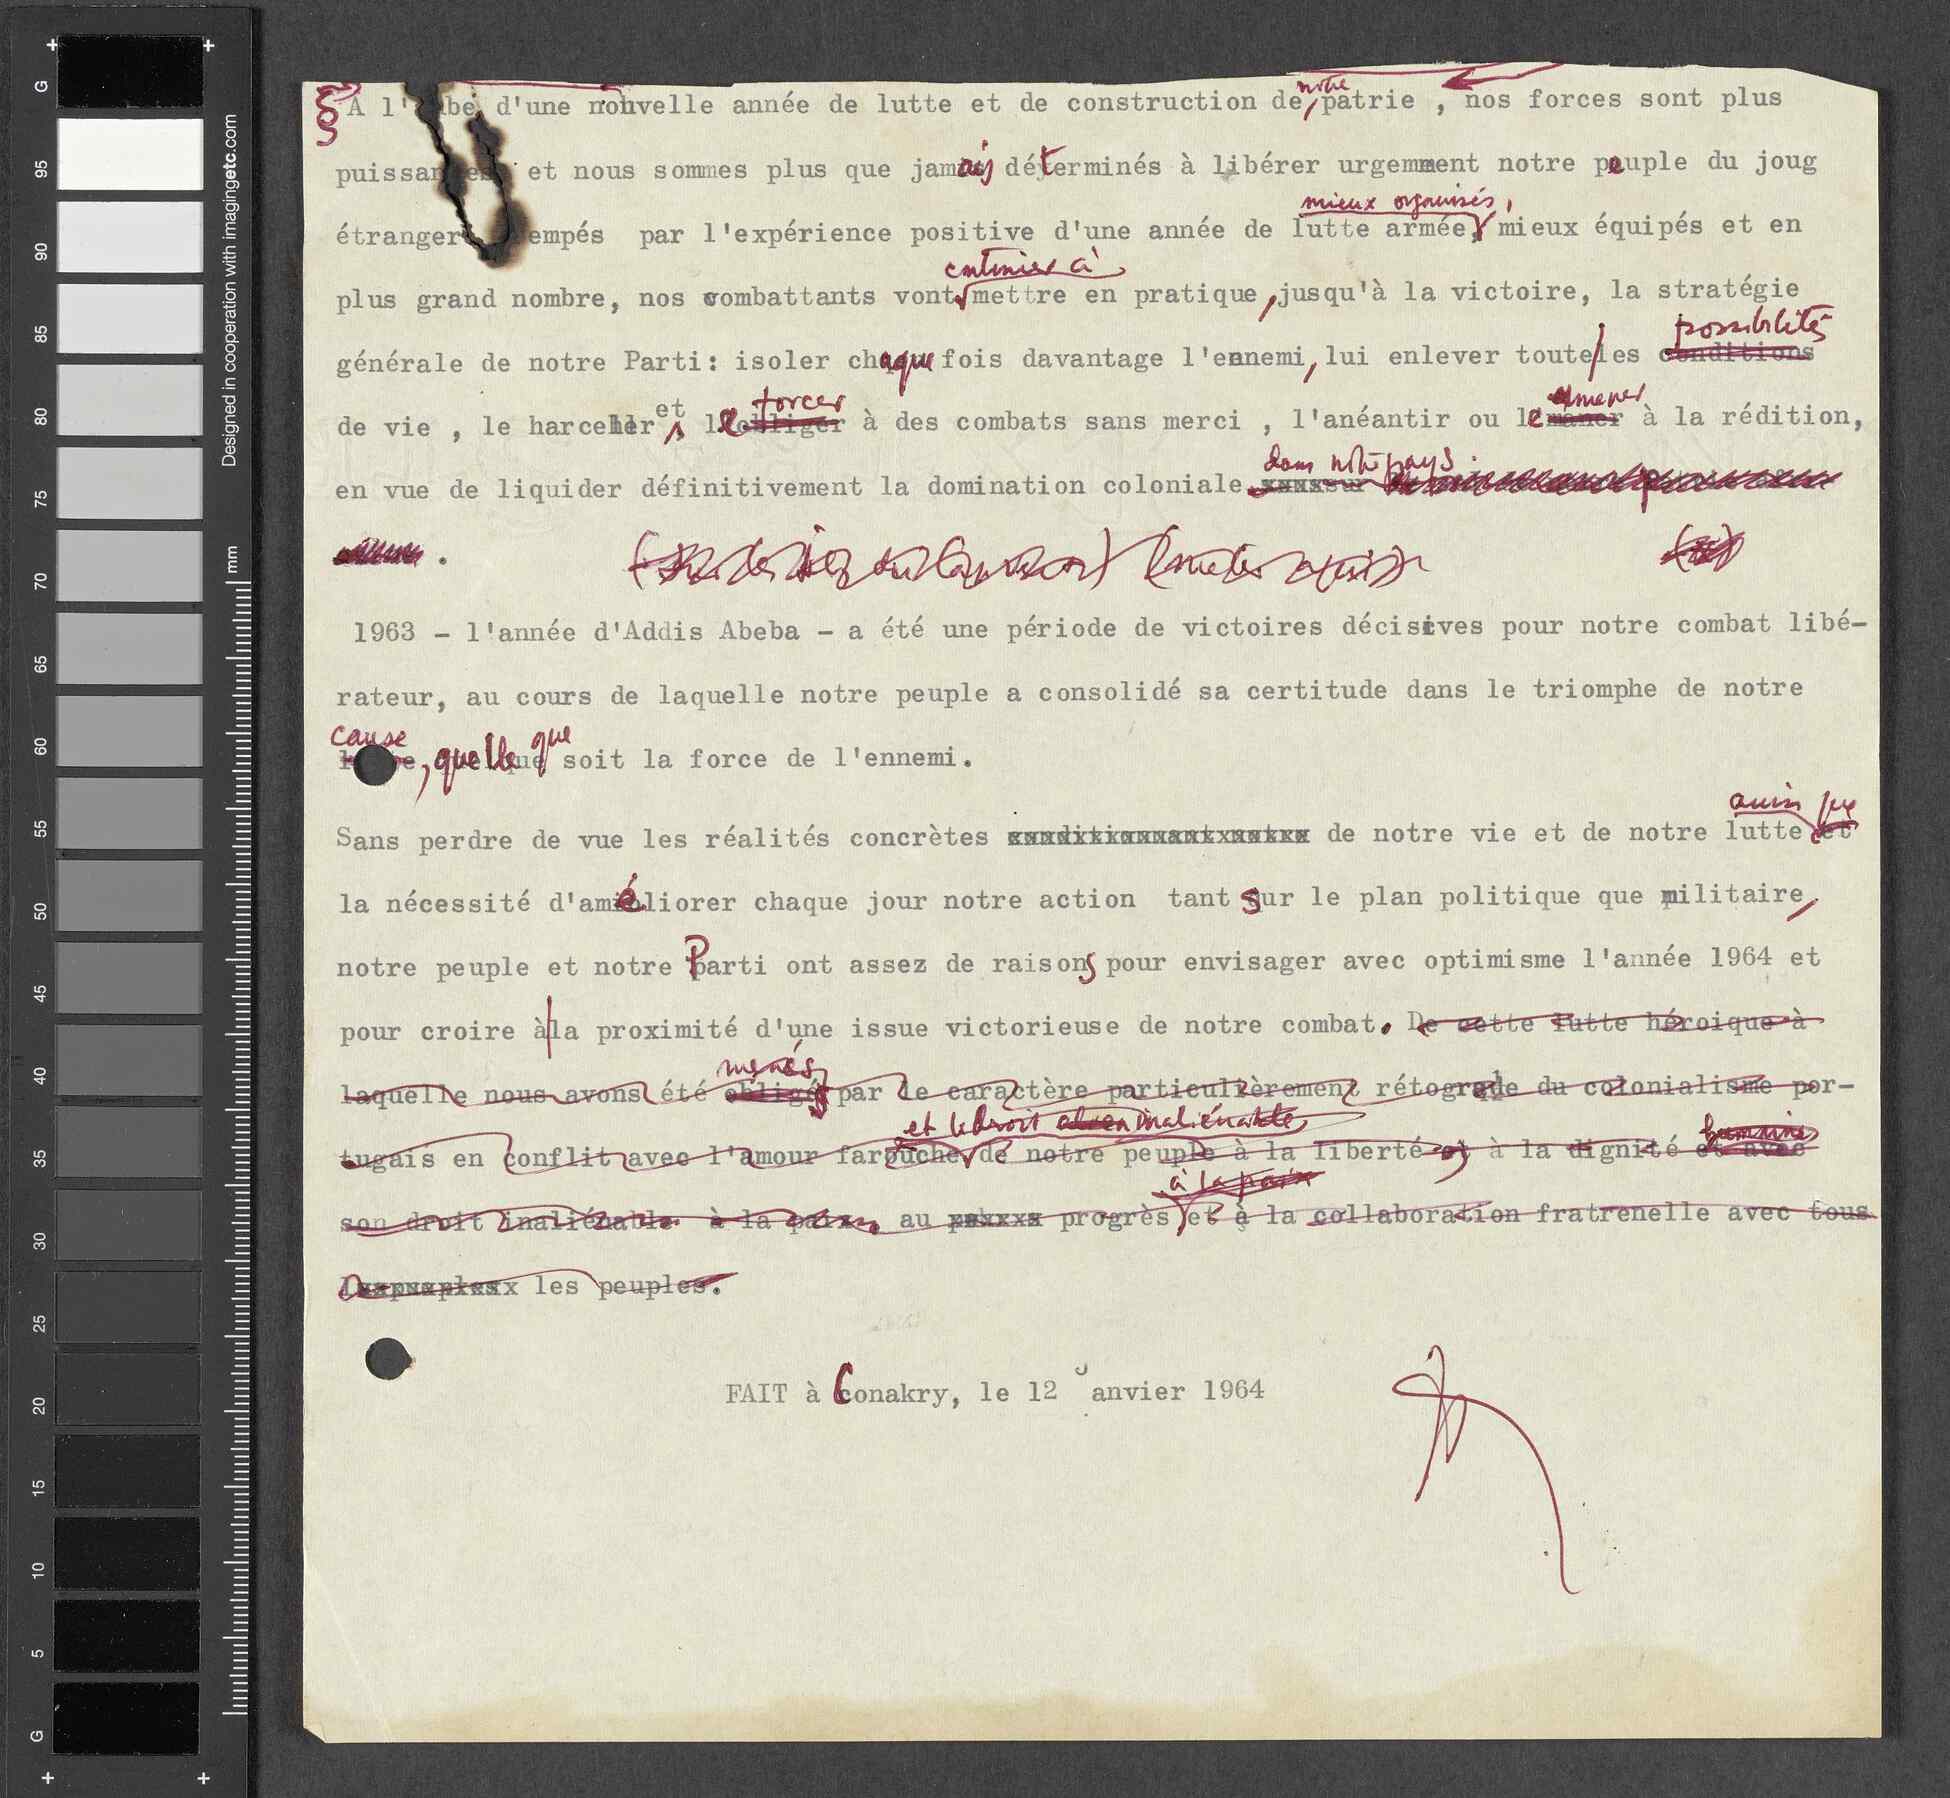 § A l'aube d'une nouvelle année de lutte et de construction de notre patrie , nos forces sont plus
puissantes et nous sommes plus que jamais déterminés à libérer urgemment notre peuple du joug
étranger empés par l'expérience positive d'une année de lutte armée, mieux organisés, mieux équipés et en
plus grand nombre, nos combattants vont continuer à mettre en pratique, jusqu'à la victoire, la stratégie
générale de notre Parti: isoler chaque fois davantage l'ennemi, lui enlever toute les conditions possibilités
de vie , le harceller et le obliger forcer à des combats sans merci , l'anéantir ou le mener emmener à la rédition,
en vue de liquider définitivement la domination coloniale sur dans notre pays.
1963 - l'année d'Addis Abeba - a été une période de victoires décisives pour notre combat libé-
rateur, au cours de laquelle notre peuple a consolidé sa certitude dans le triomphe de notre
cause, quelle que soit la force de l'ennemi.
Sans perdre de vue les réalités concrètes de notre vie et de notre lutte et
la nécessité d'améliorer chaque jour notre action tant sur le plan politique que militaire,
notre peuple et notre Parti ont assez de raisons pour envisager avec optimisme l'année 1964 et
pour croire à la proximité d'une issue victorieuse de notre combat. De cette lutte héroique à
laquelle nous avons été obligés menés par le caractère particulièrement rétograde du colonialisme por-
tugais en conflit avec l'amour farouche et le droit inaliénable de notre peuple à la liberté et à la dignité et avec
son droit inaliénable à la paix, au progrès à la paix et à la collaboration fratrenelle avec tous
les peuples.
FAIT à Conakry, le 12 Janvier 1964
Designed in cooperation with imagingetc.com
mm
G
95
90
85
80
75
70
65
60
55
50
45
40
35
30
25
20
15
10
5
G